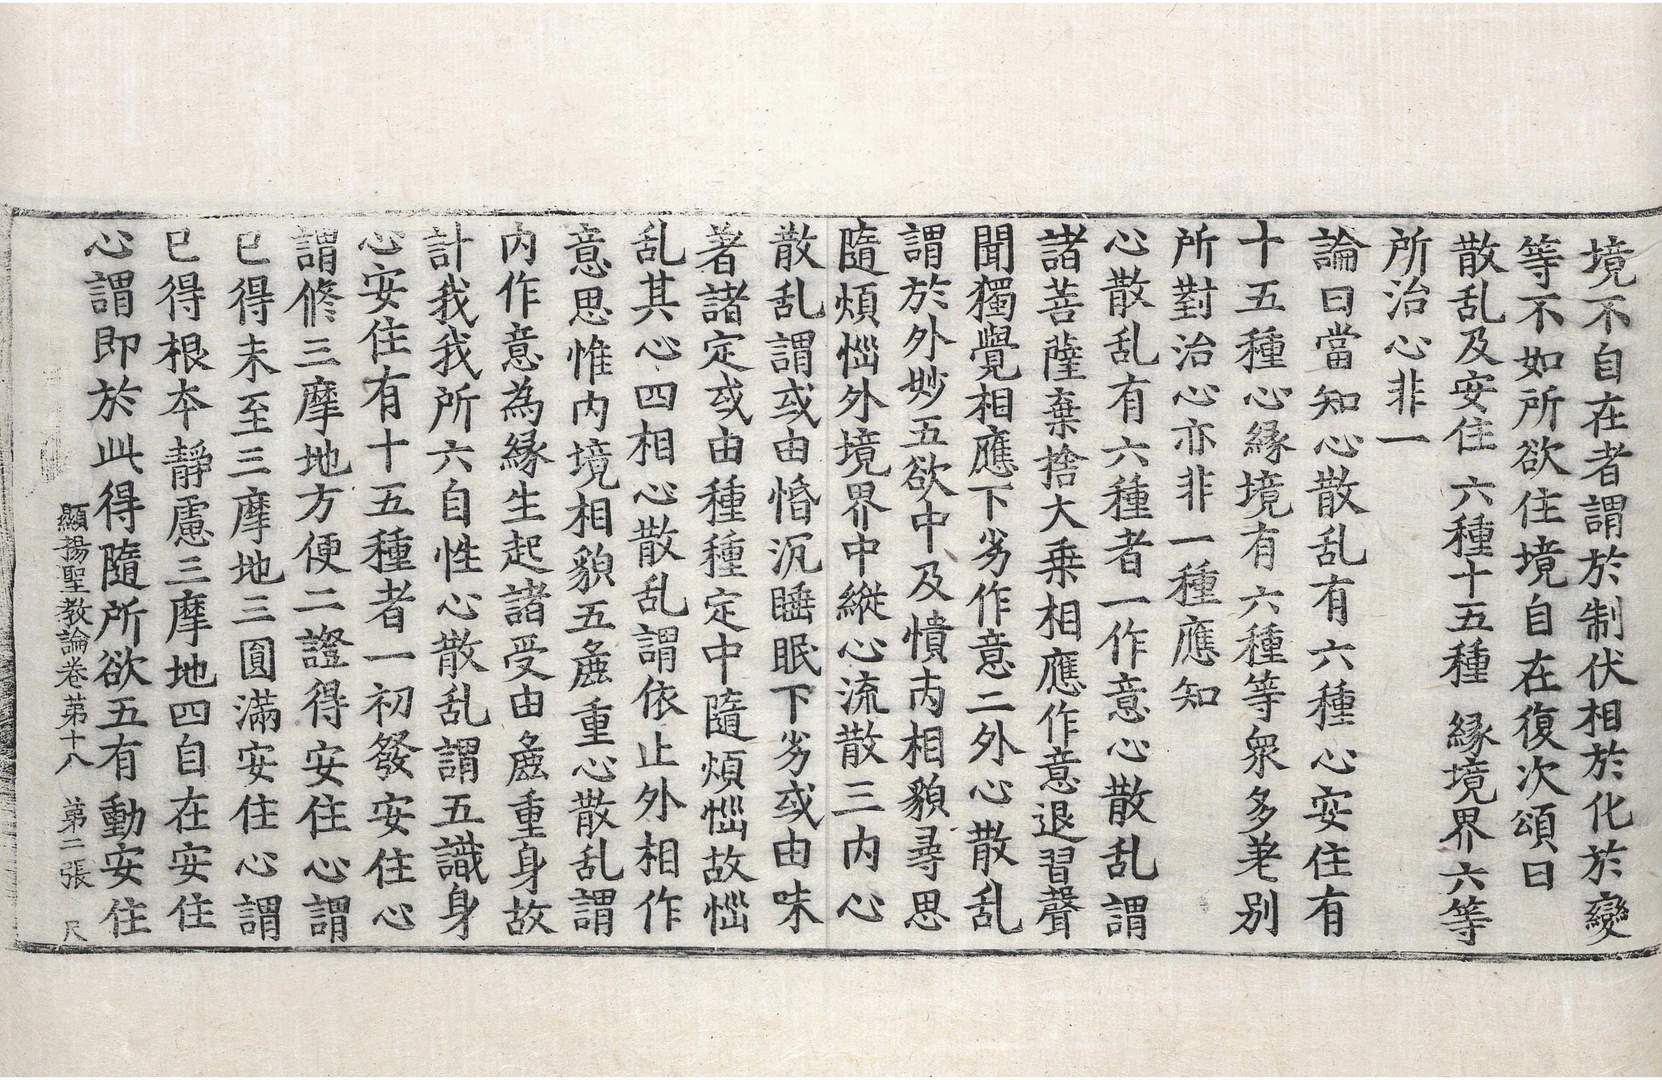 境不自在者謂於制伏相於化於變
等不如所欲住境自在復次頌曰
散乱及安住 六種十五種 緣境界六等
所治心非一
論曰當知心散乱有六種心安住有
十五種心緣境有六種等衆多差別
所對治心亦非一種應知
心散乱有六種者一作意心散乱謂
諸菩薩棄捨大乗相應作意退習聲
聞獨覺相應下劣作意二外心散乱
謂於外妙五欲中及憒丙相貌尋思
隨煩惱外境界中縱心流散三内心
散乱謂或由惛沉睡眠下劣或由味
著諸定或由種種定中隨煩惱故惱
乱其心四相心散乱謂依止外相作
意思惟内境相貌五麁重心散乱謂
内作意為緣生起諸受由麁重身故
計我我所六自性心散乱謂五識身
心安住有十五種者一初發安住心
謂脩三摩地方便二證得安住心謂
已得未至三摩地三圓滿安住心謂
已得根本静慮三摩地四自在安住
心謂即於此得隨所欲五有動安住
顯揚聖教論卷苐十八 苐二張 尺